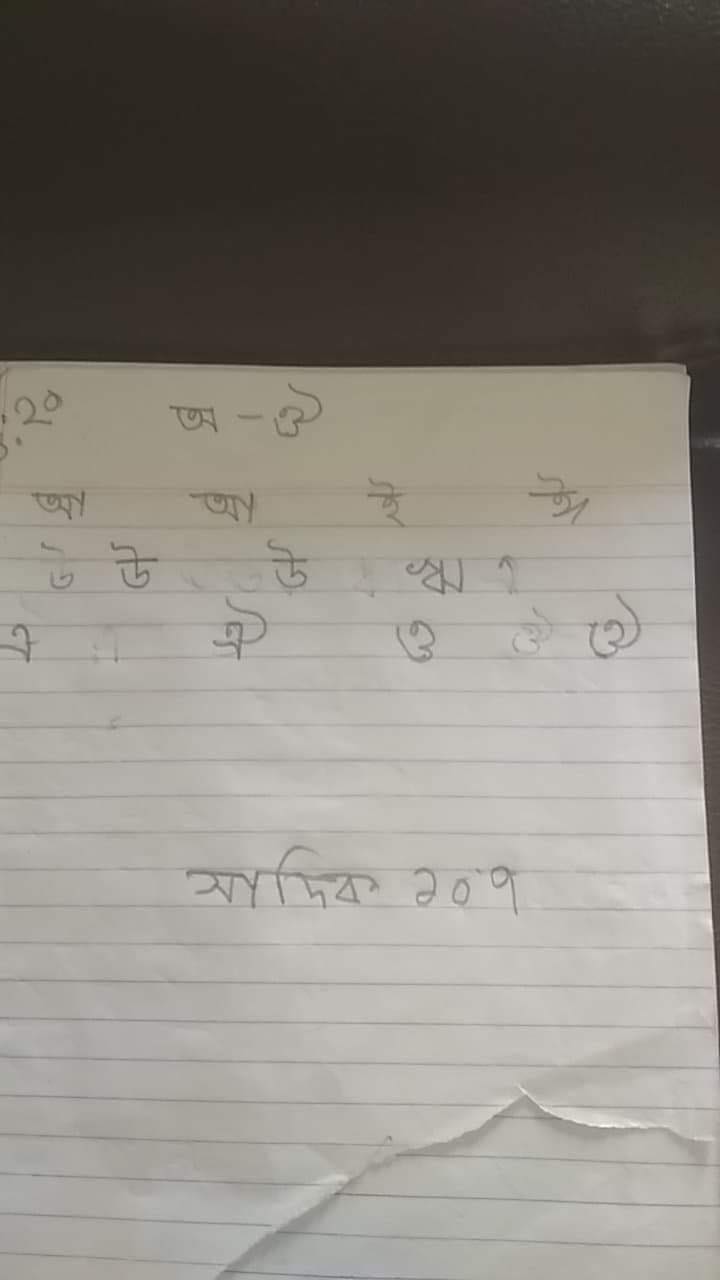 .২০ অ - ঔ
আ আ ই ঈ
উ উ উ ঋ
এ ঐ ও ঔ ঔ
সাদিক ২০৭